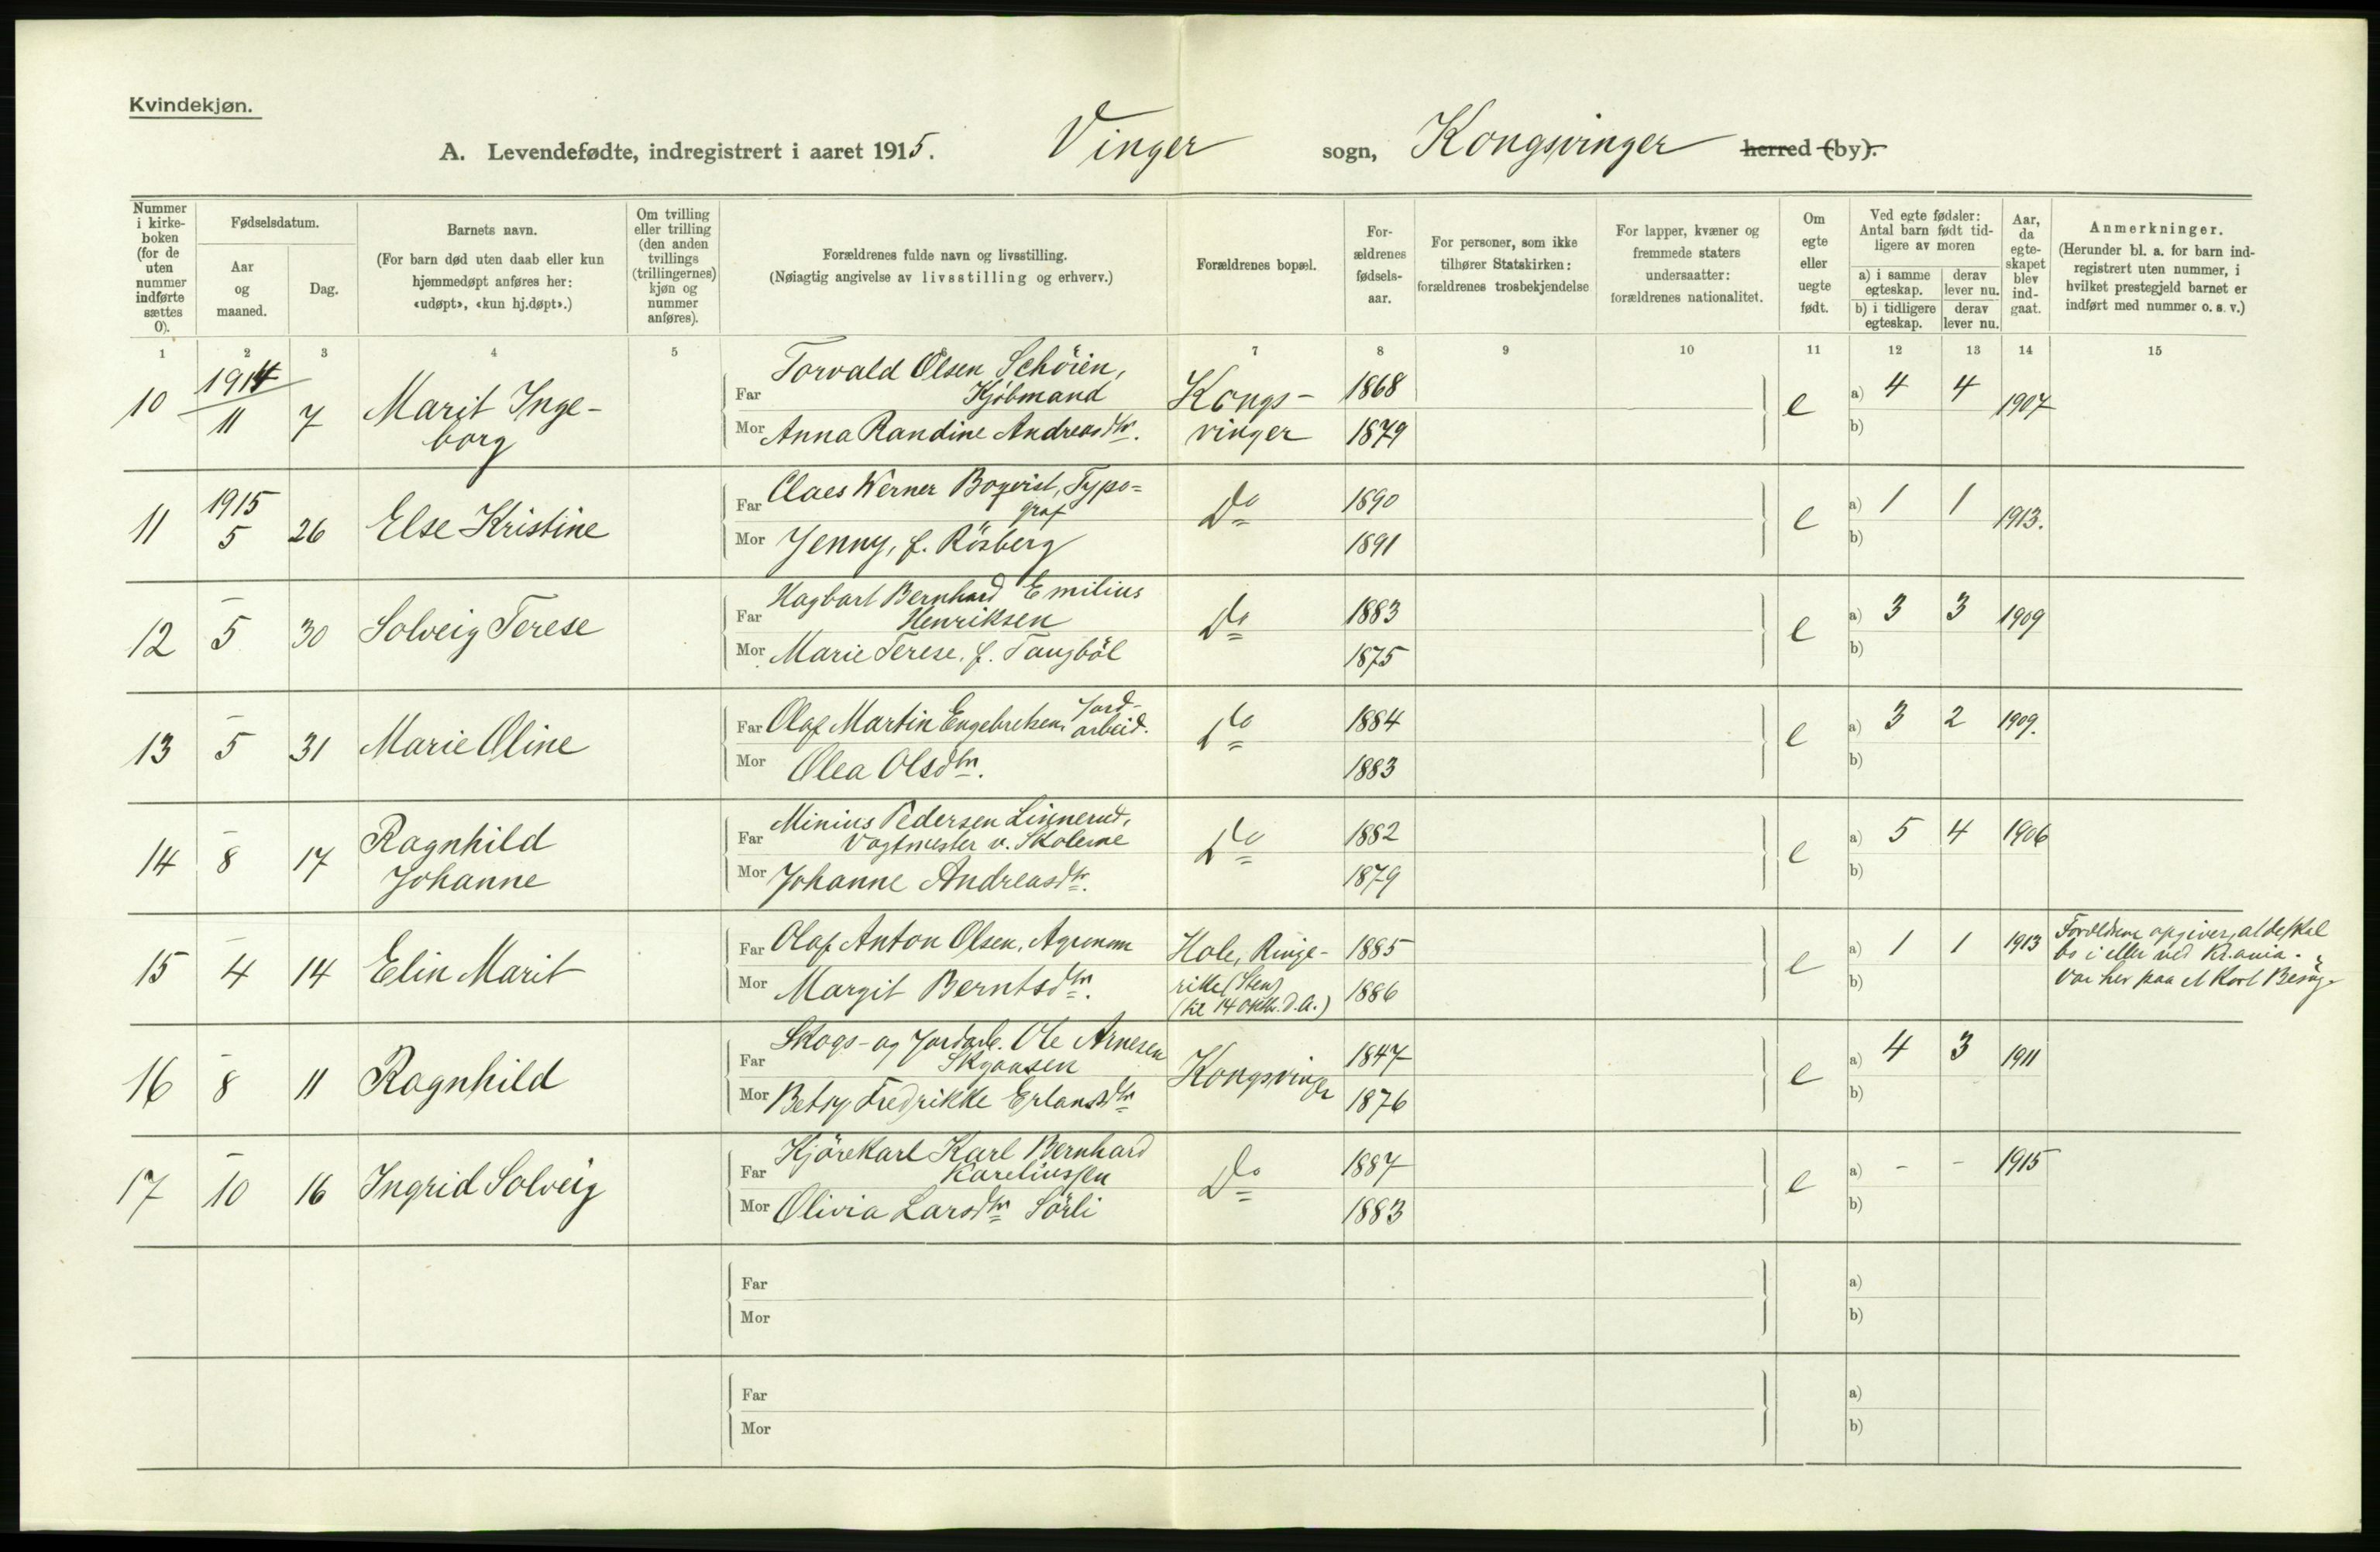 Kvindekjøn.
A. Levendefødte, indregistrert i aaret 1915. Vinger sogn, Kongsvinger herred (by).
Nummer i kirke-boken (for de uten nummer indførte sættes 0).
Fødselsdatum.
Aar og maaned.
Dag.
Barnets navn.
(For barn død uten daab eller kun hjemmedøpt anføres her: «udøpt», «kun hj.døpt».)
Om tvilling eller trilling (den anden tvillings (trillingernes) kjøn og nummer anføres).
Forældrenes fulde navn og livsstilling.
(Nøiagtig angivelse av livsstilling og erhverv.)
Forældrenes bopæl.
For-ældrenes fødsels-aar.
For personer, som ikke tilhører Statskirken: forældrenes trosbekjendelse
For lapper, kvæner og fremmede staters undersaatter: forældrenes nationalitet.
Om egte eller uegte født.
Ved egte fødsler: Antal barn født tid-ligere av moren
a) i samme egteskap.
derav lever nu.
b) i tidligere egteskap.
derav lever nu.
Aar, da egte-skapet blev ind-gaat.
Anmerkninger.
(Herunder bl. a. for barn ind-registrert uten nummer, i hvilket prestegjeld barnet er indført med nummer o. s. v.)
1 2 3 4 5 6 7 8 9 10 11 12 13 14 15
10 1914 11 7 Marit Inge-
borg
Far Torvald Olsen Schöien,
Kjöbmand
Kongs-
vinger
1868 e a) 4 4 1907
Mor Anna Randine Andreasdtr. 1879 b)
11 1915 5 26 Else Kristine
Far Claes Werner Boqvist, Typo=
graf
Do 1890 e a) 1 1 1913.
Mor Jenny, f. Rösberg 1891 b)
12 – 5 30 Solveig Terese
Far Hagbart Bernhard Emilius
Henriksen
Do 1883 e a) 3 3 1909
Mor Marie Terese, f. Taugböl 1875 b)
13 – 5 31 Marie Oline
Far Olaf Martin Engebretsen, Jord-
arbeid.
Do 1884 e a) 3 2 1909.
Mor Olea Olsdtr. 1883 b)
14 – 8 17 Ragnhild
Johanne
Far Minius Pedersen Linnerud,
Vagtmester v. Skolerne
Do 1882 e a) 5 4 1906
Mor Johanne Andreasdtr. 1879 b)
15 – 4 14 Elin Marit
Far Olaf Anton Olsen, Agronom
Hole, Ringe-
rike (Sten)
(til 14 oktbr. d.a.)
1885 e a) 1 1 1913
Mor Margit Berntsdtr. 1886 b)
Forældrene opgiver, at de skal
bo i eller ved Kr.ania.
Var her paa et Kort Besøg.
16 – 8 11 Ragnhild
Far Skogs- og Jordarb. Ole Arnesen
Kongsvinger 1847 e a) 4 3 1911
Mor Betsy Fredrikke Erlandsdtr 1876 b)
17 – 10 16 Ingrid Solveig
Far Kjörekarl Karl Bernhard
Kareliussen
Do 1887 e a) - - 1915
Mor Olivia Larsdtr Sörli 1883 b)
Far a)
Mor b)
Far a)
Mor b)